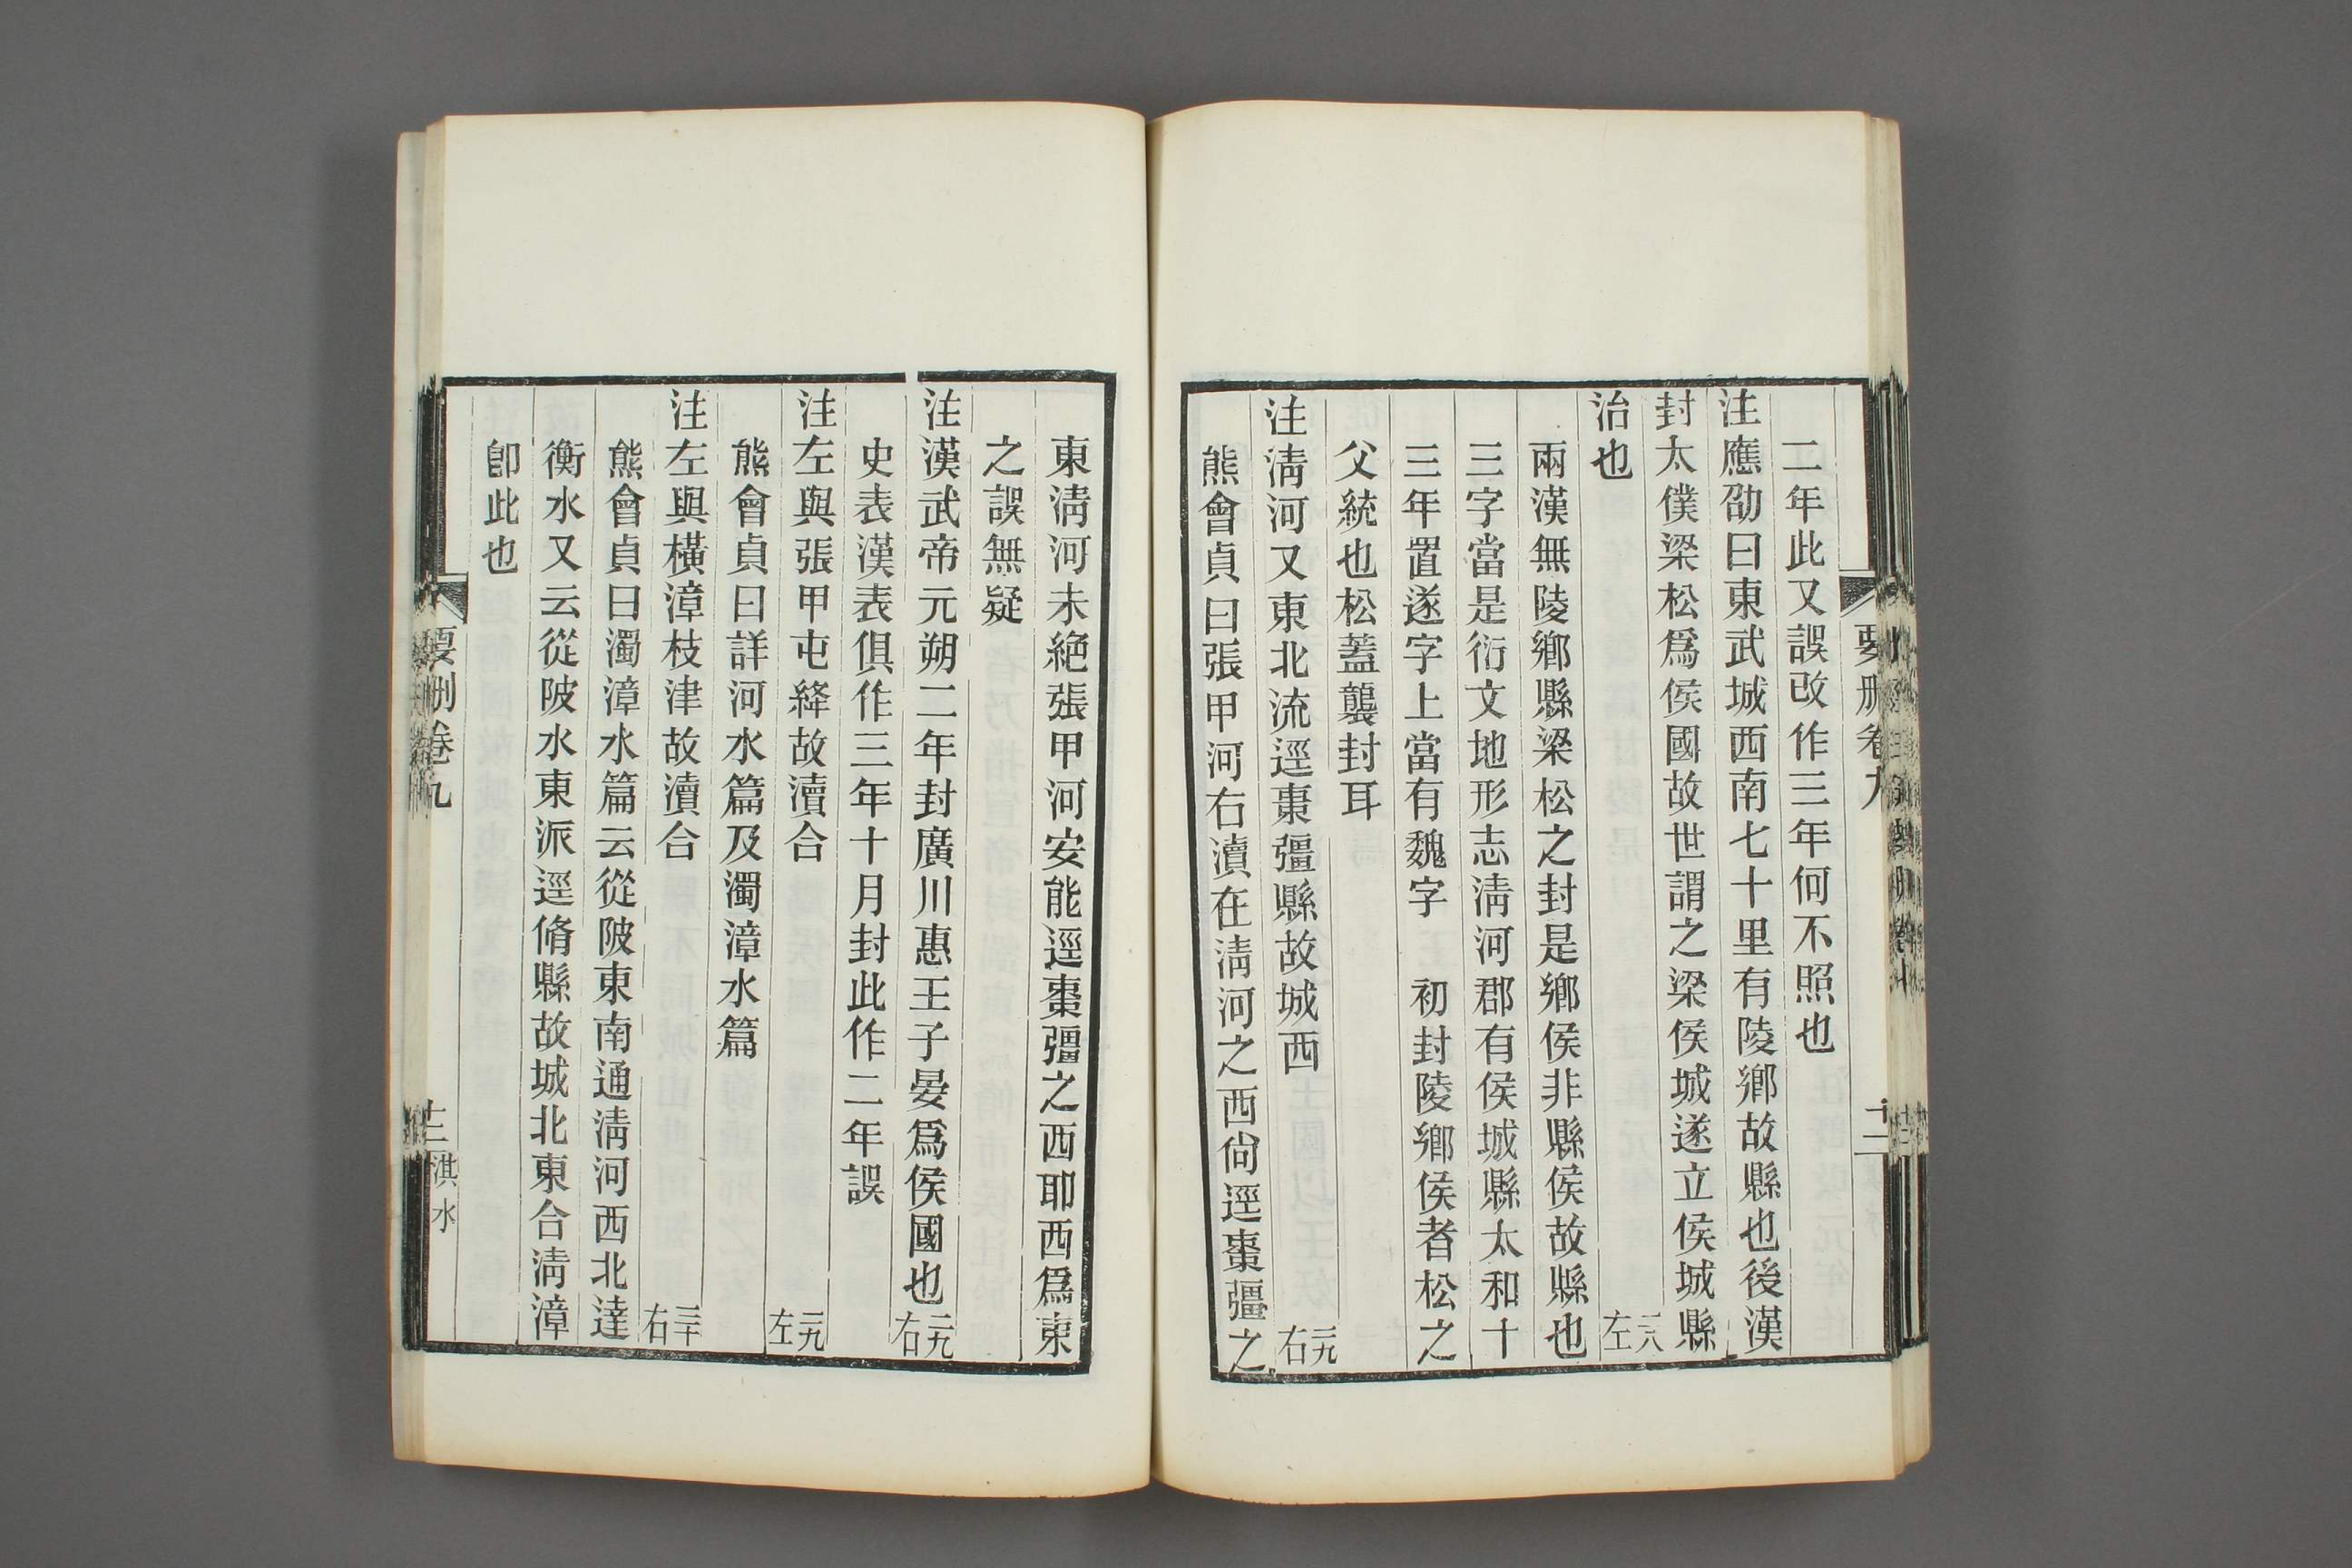 要刪卷九
十二
二年此又誤改作三年何不照也
注應劭曰東武城西南七十里有陵鄉故縣也後漢
封太僕梁松爲侯國故世謂之梁侯城遂立侯城縣
治也
二八左
兩漢無陵鄉縣梁松之封是鄉侯非縣侯故縣也
三字當是衍文地形志淸河郡有侯城縣太和十
三年置遂字上當有魏字　初封陵鄉侯者松之
父統也松蓋襲封耳
注淸河又東北流逕棗彊縣故城西
二九右
熊會貞曰張甲河右瀆在淸河之西尙逕棗彊之
東淸河未絶張甲河安能逕棗彊之西耶西爲東
之誤無疑
注漢武帝元朔二年封廣川惠王子晏爲侯國也
二九右
史表漢表俱作三年十月封此作二年誤
注左與張甲屯絳故瀆合
二九左
熊會貞曰詳河水篇及濁漳水篇
注左與橫漳枝津故瀆合
三十右
熊會貞曰濁漳水篇云從陂東南通淸河西北達
衡水又云從陂水東派逕脩縣故城北東合淸漳
卽此也
要刪卷九
淇水